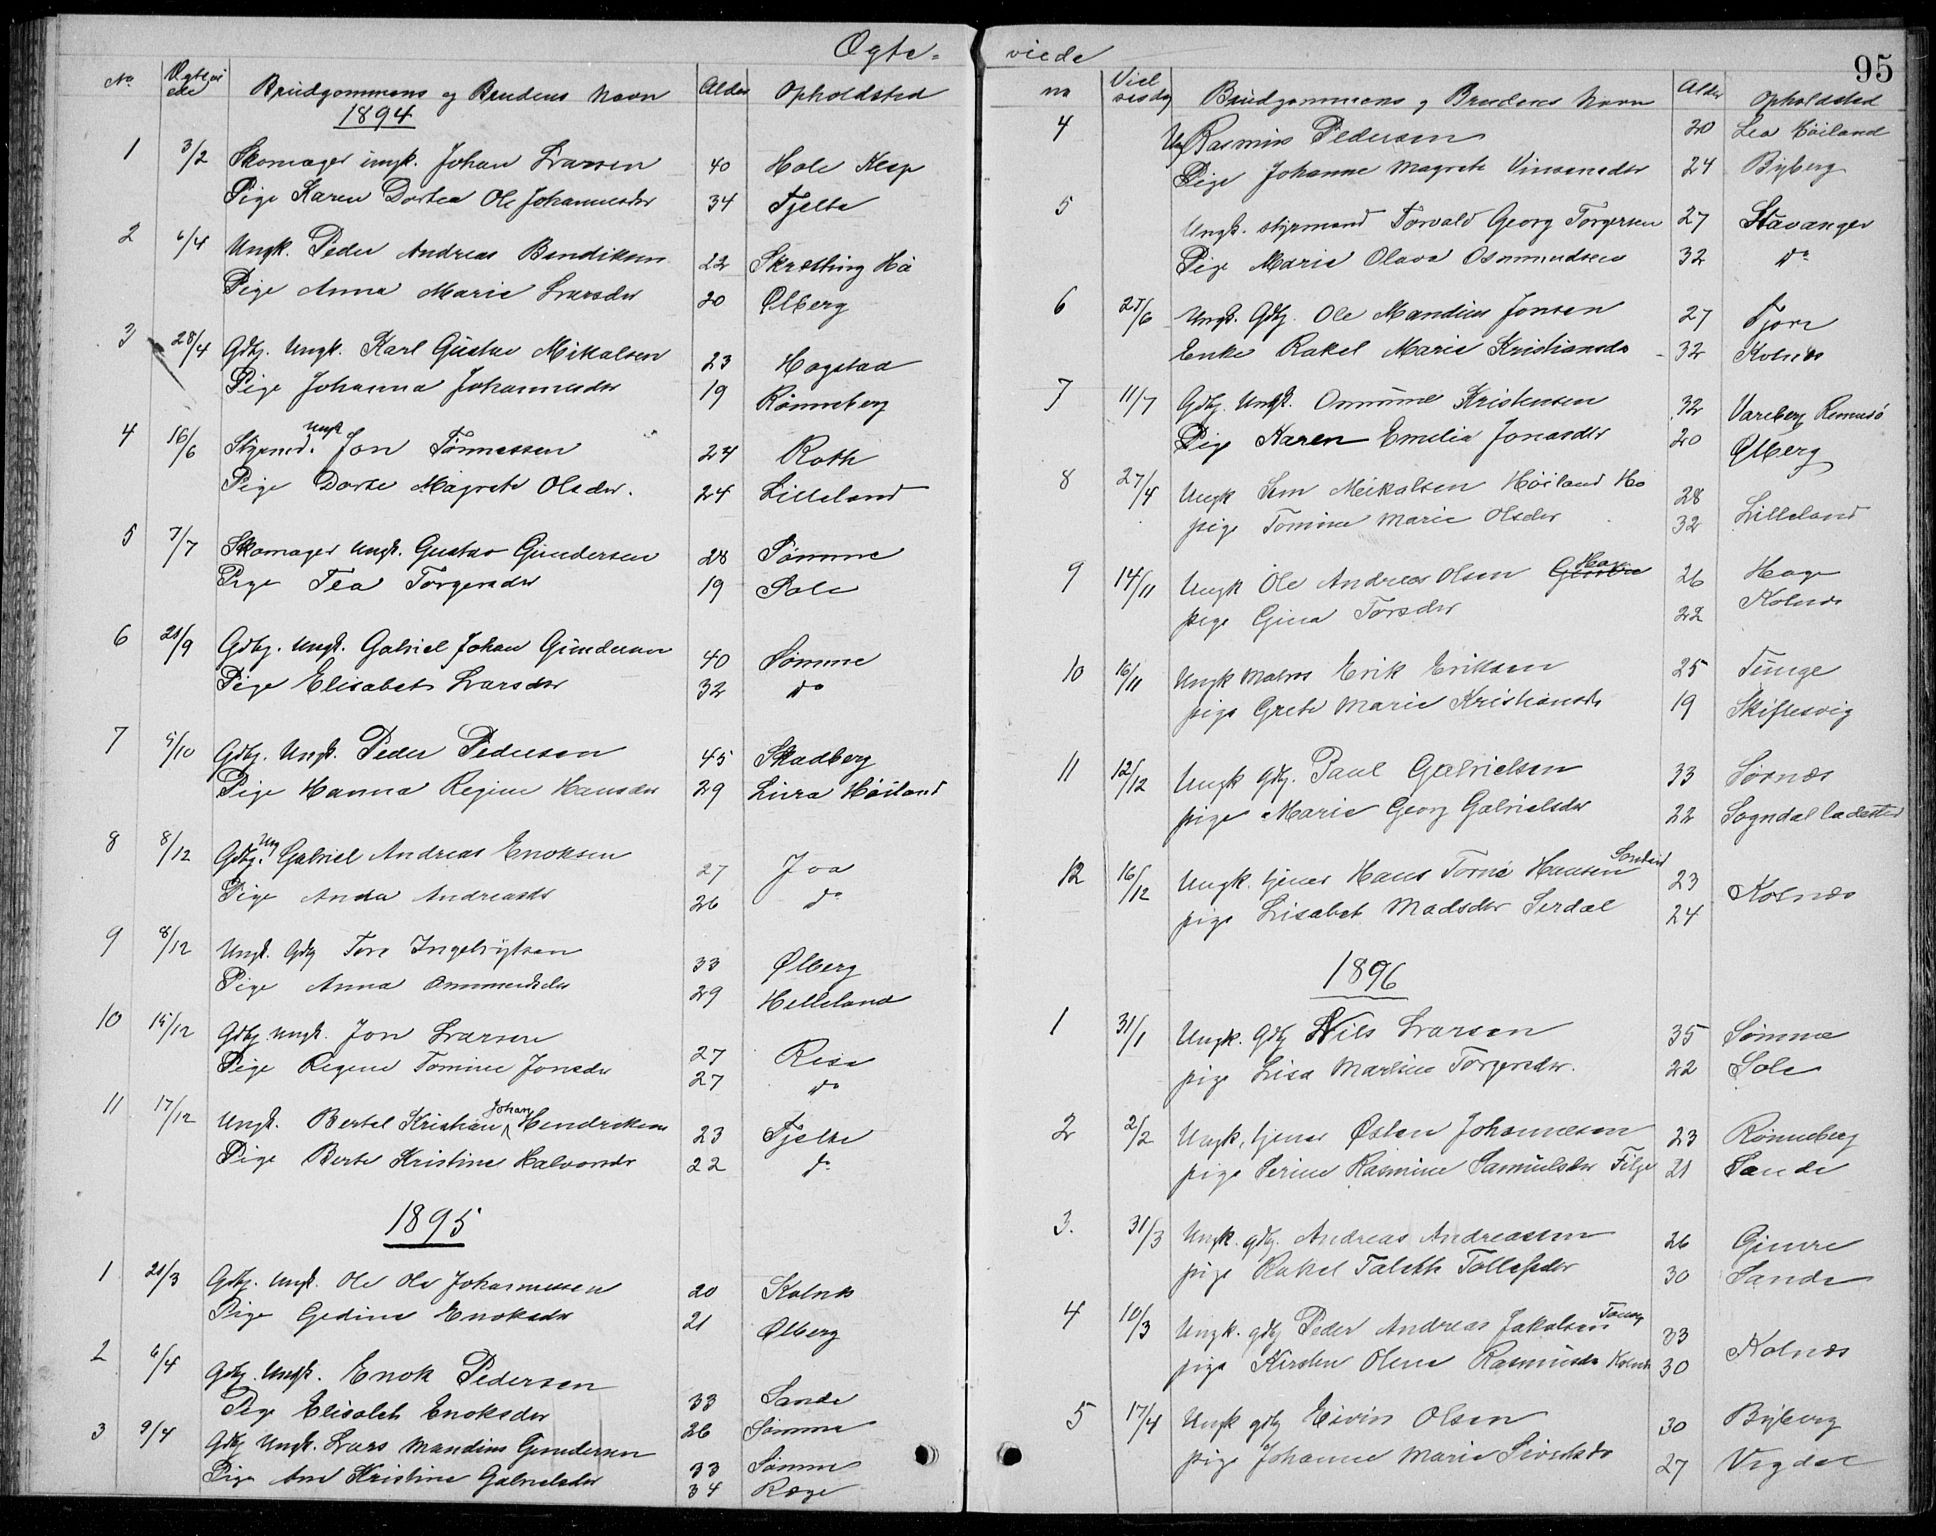 Ægte-
No Ægtevi ede Brudgommens og Brudens Navn Alder Opholdsted
1894
1 3/2 Skomager ungk. Johan Larsen 40 Hole Klep
Pige Karen Dortea Ole Johannesdr 34 Tjelta
2 6/4 Ungk. Peder Andreas Bendiksen 22 Skrætting Hå
Pige Anna Marie Larsdr 20 Ølberg
3 28/4 Gdbg. Ungk. Karl Gustav Mikalsen 23 Hogstad
Pige Johanna Johannesdr 19 Rønneberg
4 16/6 Styrmd. Ungk Jon Tønnessen 24 Roth
Pige Dorte Magrete Olsdr. 24 Lilleland
5 7/7 Skomager Ungk. Gustav Gundersen 28 Sømme
Pige Tea Torgersdr 19 Sole
6 21/9 Gdbg. Ungk. Gabriel Johan Gundersen 40 Sømme
Pige Elisabet Larsdr 32 do
7 5/10 Gdbg. Ungk. Peder Pedersen 45 Skadberg
Pige Hanna Regine Hansdr 29 Livra Høiland
8 8/12 Gdbg. Ung Gabriel Andreas Enoksen 27 Joa
Pige Anda Andreasdr 26 do
9 8/12 Ungk. Gdbg Tore Ingebrigtsen 33 Ølberg
Pige Anna Ommundsdr 29 Helleland
10 15/12 Gdbg. Ungk. Jon Larsen 27 Risa
Pige Regine Tomine Jonsdr 27 do
11 17/12 Ungk. Bertel Kristian Johan Hendriksen 23 Tjelta
Pige Berte Kristine Halvorsdr 22 do
1895
1 21/3 Gdbg. Ungk. Ole Ole Johannessen 20 Kolnes
Pige Gedine Enoksdr 21 Ølberg
2 6/4 Gdbg. Ungk. Enok Pedersen 33 Sande
Pige Elisabet Enoksdr 26 Sømme
3 9/4 Gdbg Ungk. Lars Mandius Gundersen 33 Sømme
Pige Ane Kristine Gabrielsdr 34 Ræge
viede 95
no Viel sesdag Brudgommens og Brudens Navn Alder Opholdsted
4 Ung Rasmus Pedersen 20 Lea Høiland
Pige Johanne Magrete Vinsensdr 24 Byberg
5 Ungk. styrmand Torvald Georg Torgersen 27 Stavanger
Pige Marie Olava Osmundsen 32 do
6 27/6 Ungk. Gdbg. Ole Mandius Jonsen 27 Tjore
Enke Rakel Marie Kristiansdr 32 Kolnes
7 11/7 Gdbg. Ungk. Ommund Kristensen 32 Vareberg Rennesø
Pige Karen Emelie Jonasdr 20 Ølberg
8 27/4 Ungk Sem Mikalsen Høiland Hå 28
pige Tomine Marie Olsdr 32 Lilleland
9 14/11 Ungk Ole Andreas Olsen Haga 26 Haga
pige Gina Torsdr 22 Kolnes
10 16/11 Ungk Matros Erik Eriksen 25 Tunge
pige Grete Marie Kristiansdr 19 Skiftesvig
11 12/12 Ungk gdbg. Paul Gabrielsen 33 Sørnes
pige Marie Georg Gabrielsdr 22 Sogndal ladested
12 16/12 Ungk. tjener Hans Torne Hansen 23
pige Lisabet Madsdr Serdal 24 Kolnes
1896
1 31/1 Ungk. Gdbg Nils Larsen 35 Sømme
pige Lisa Martine Torgersdr. 22 Sole
2 2/2 Ungk, tjener Østen Johannesen 23 Rønneberg
pige Serine Rasmine Samuelsdr 21 Sande
3. 31/3 Ungk. gdbg. Andreas Andreassen 26 Gimre
pige Rakel Taletta Tollefsdr 30 Sande
4 10/3 Ungk. gdbg Peder Andreas Jakobsen 33
pige Kirsten Oline Rasmusdr Kolnes 30 Kolnes
5 17/4 Ungk gdbg Eivin Olsen 30 Byberg
pige Johanne Marie Sivertsdr 27 Vigdel